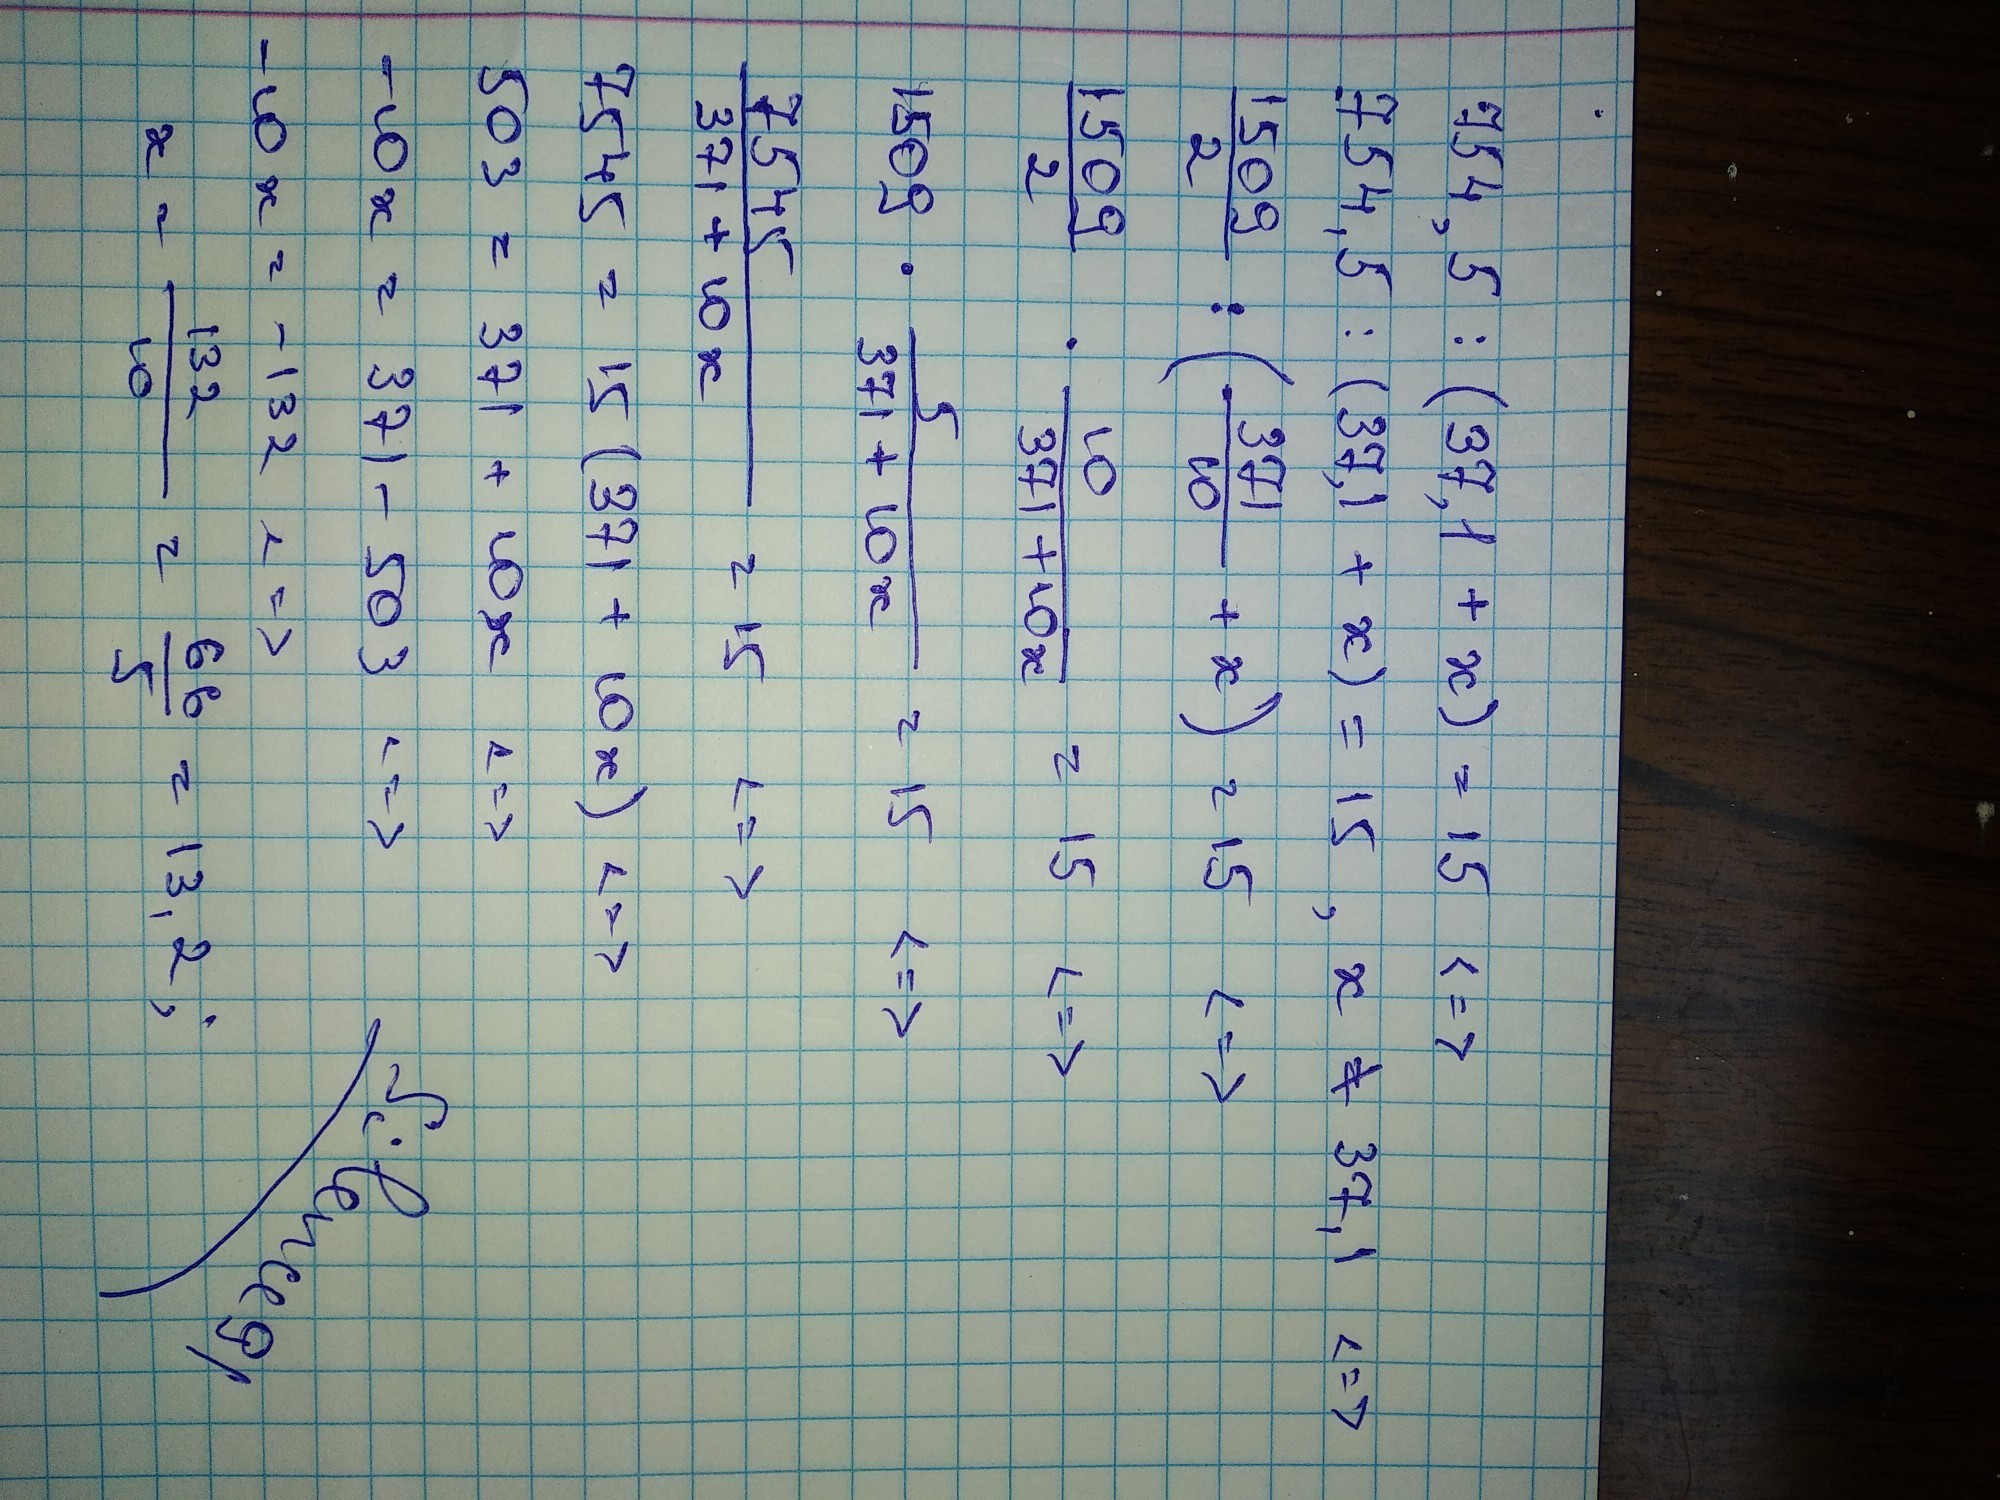 754,5 : (37,1 + x) = 15 <=>
754,5 : (37,1 + x) = 15, x ≠ 37,1 <=>
1509/2 : (371/10 + x) = 15 <=>
1509/2 · 10/(371 + 10x) = 15 <=>
1509 · 5/(371 + 10x) = 15 <=>
7545/(371 + 10x) = 15 <=>
7545 = 15 (371 + 10x) <=>
503 = 371 + 10x <=>
-10x = 371 - 503 <=>
-10x = -132 <=>
x = 132/10 = 66/5 = 13,2 ;